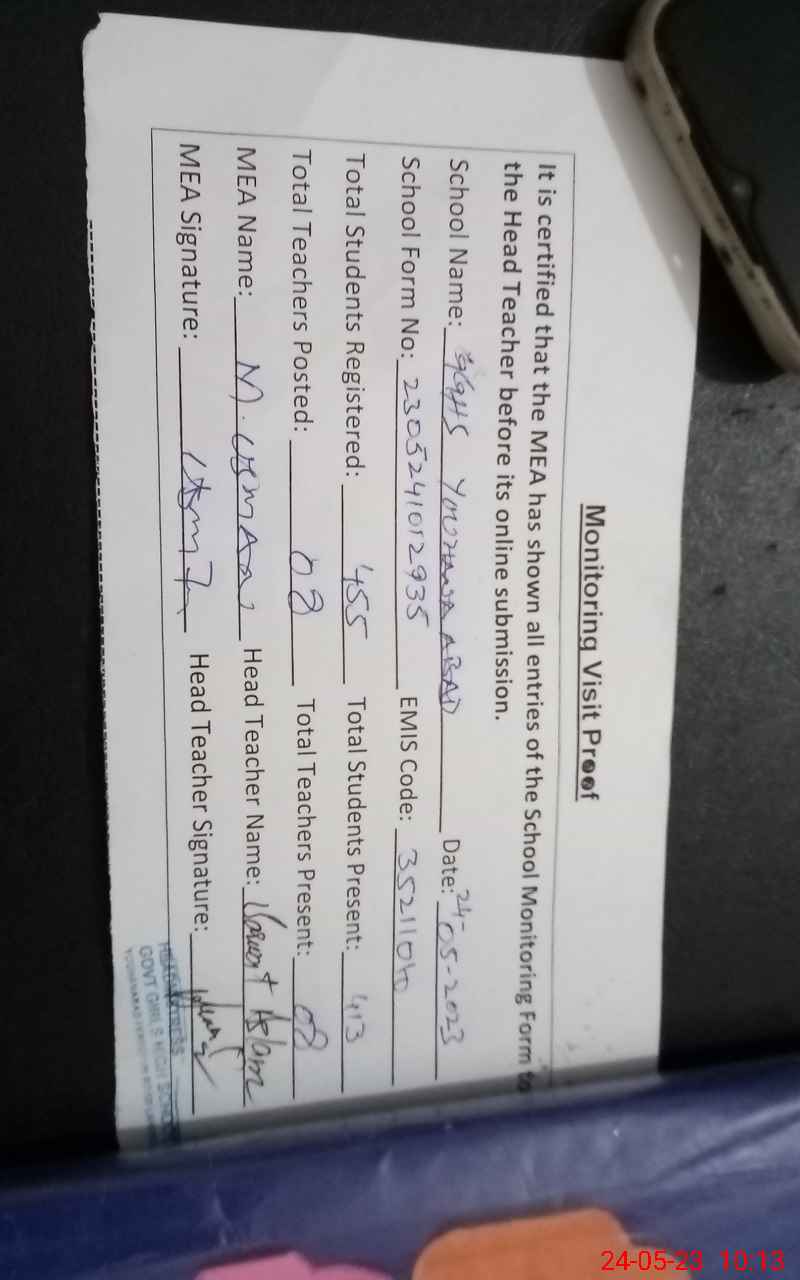 Monitoring Visit Proof
It is certified that the MEA has shown all entries of the School Monitoring Form to
the Head Teacher before its online submission.
School Name: GGHS YOUHANA ABAD Date: 24-05-2023
School Form No: 2305241012935 EMIS Code: 35211040
Total Students Registered: 455 Total Students Present: 413
Total Teachers Posted: 08 Total Teachers Present: 08
MEA Name: M. USMAN Head Teacher Name: Aslam
MEA Signature: Head Teacher Signature:
HEADMISTRESS
GOVT GIRLS HIGH SCHOOL
24-05-23 10:13